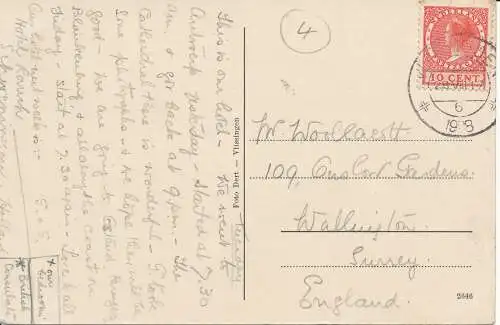 This is our hotel - We went to
Antwerp yesterday - started at 7.30
a.m. & got back at 9 p.m. - The
Cathedral there is wonderful - G. took
some photographs & we hope they will be
good - We are going to Ostend,
Blankenberg & all along the coast on
Friday - start at 7.30 a.m. - Love to all
Our love next week :-
G. & E.
Hotel
Holland
X our
* British
Consulate
Foto Dert - Vlissingen
4
NEDERLAND
10 CENT
6
193
W. Woollacott
109, Onslow Gardens
Wallington
Surrey
England.
2646